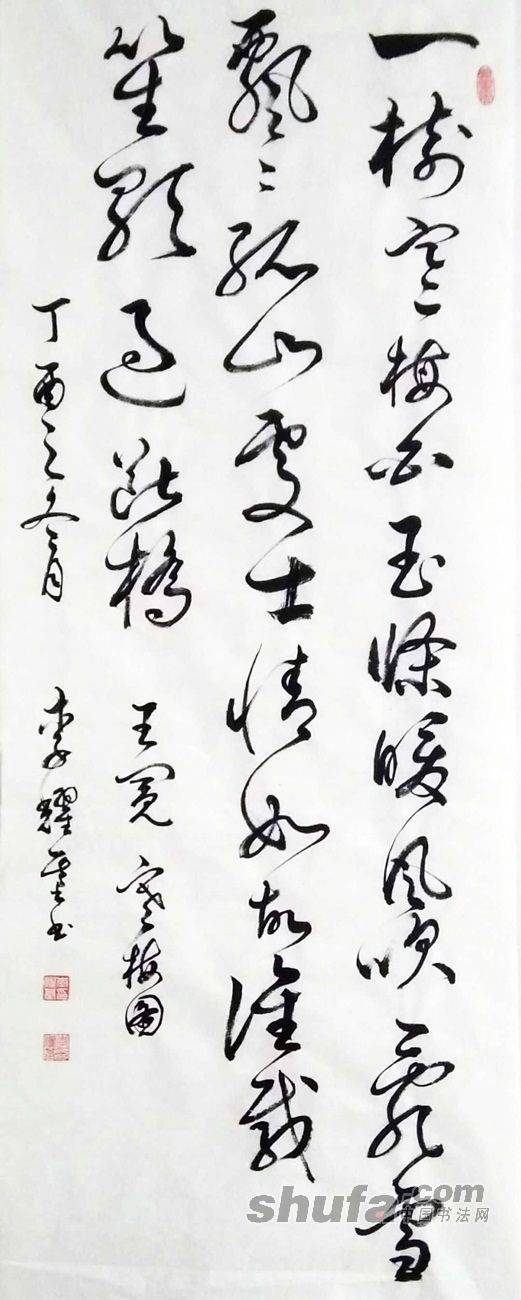 一樹寒梅白玉條暖風吹亂雪
飄〻孤山處士情如故誰載
笙歌過斷橋 王冕 寒梅圖
丁酉之冬月 李耀書
shufa.com
中国书法网